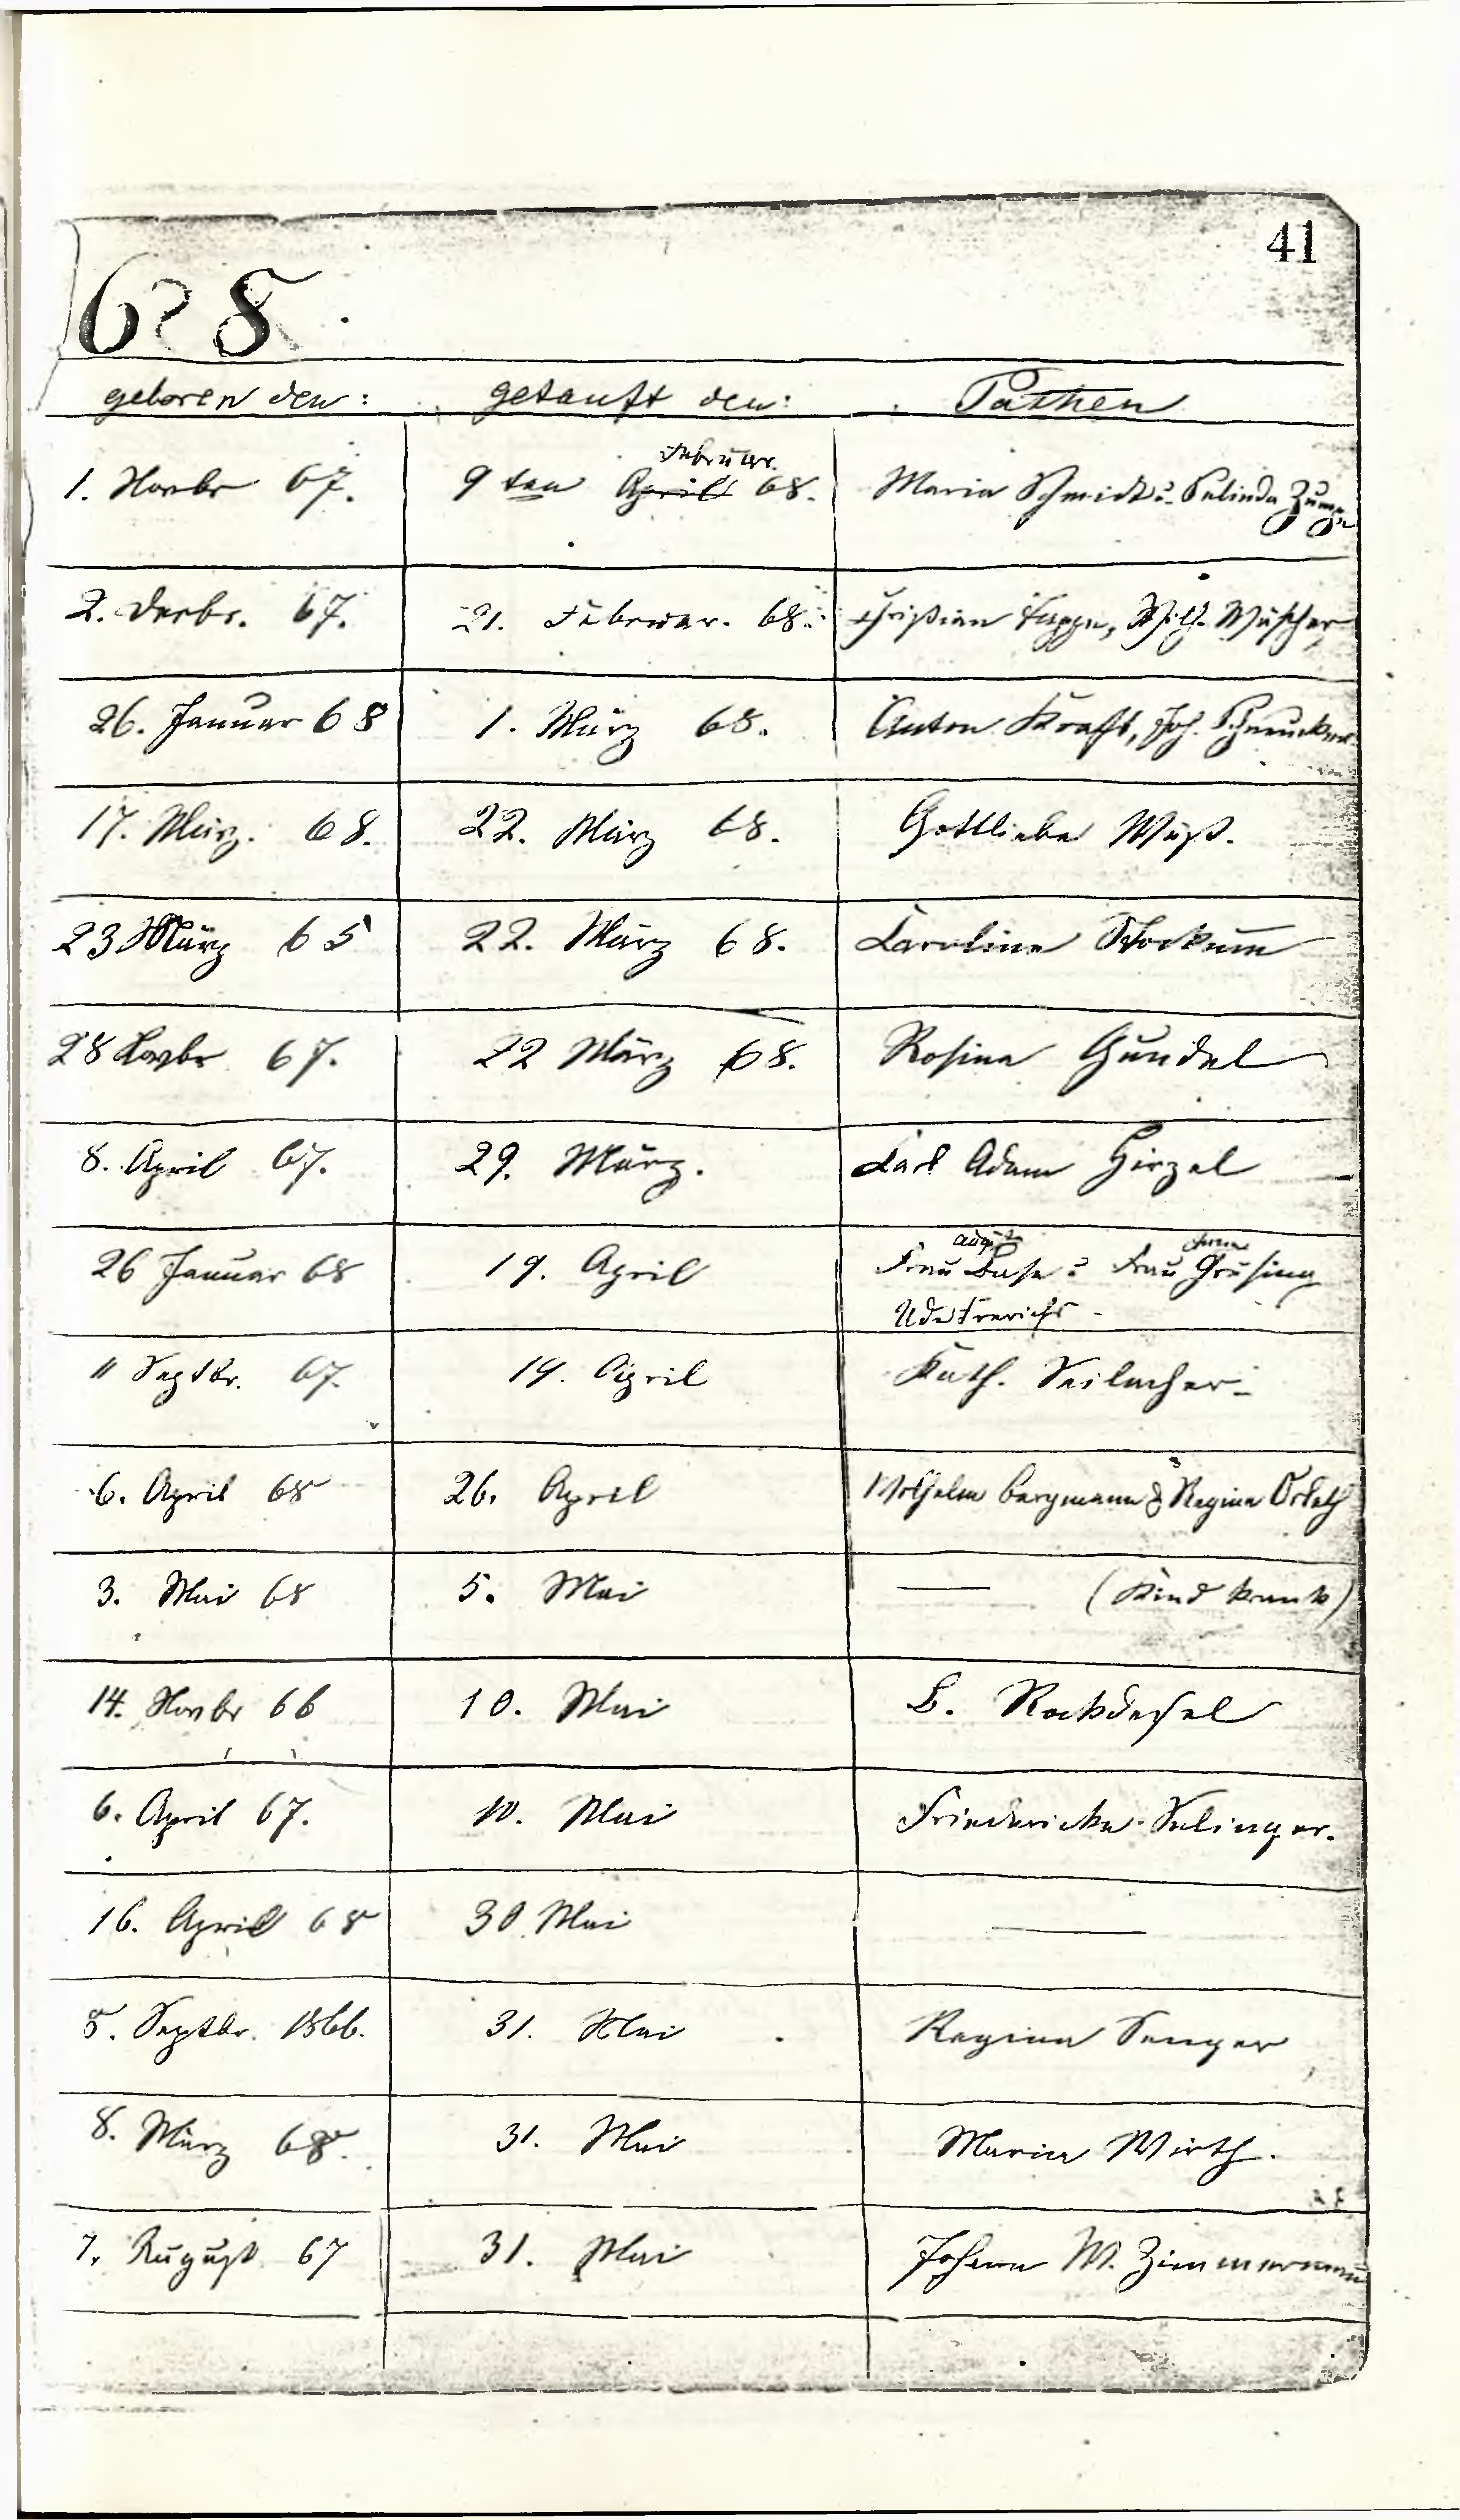 41
68.
geboren den: getauft den: Pathen
Februar.
1. Novbr 67. 9 ten April 68. Maria Schmidt u.
2. Decbr. 67. 21. Februar. 68. Christian Wilh.
26. Januar 68 1. März 68. Anton Kraft, Joh.
17. März. 68. 22. März 68. Gottliebe Wüst.
23 März 65 22. März 68. Caroline
28 Novbr 67. 22 März 68. Rosina Gundel
8. April 67. 29. März. Carl Adam Hirzel
26 Januar 68 19. April Frau Base u. Frau Grusing
11 Septbr. 67. 19. April Kath. Seilacher
6. April 68 26. April Wilhelm Bergmann & Regina
3. Mai 68 5. Mai — (Kind krank)
14. Novbr 66 10. Mai
6. April 67. 10. Mai Friedericke Selinger.
16. April 68 30 Mai —
5. Septbr. 1866. 31. Mai Regina Senger
8. März 68. 31. Mai Maria Wirth.
7. August 67 31. Mai Johann W. Zimmermann